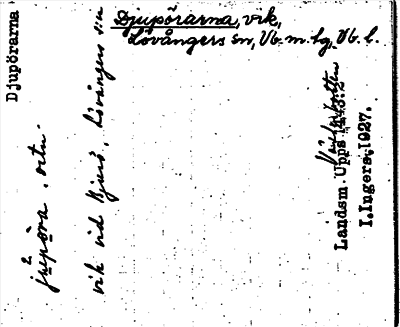 Djupörarna
Djupörarna, vik,
Lövångers sn, Vb. m. lg, Vb. l.
vik vid Bjurö, Lövångers sn
Västerbotten
Landsm. Upps 1443:2
I.Ingers, 1927.